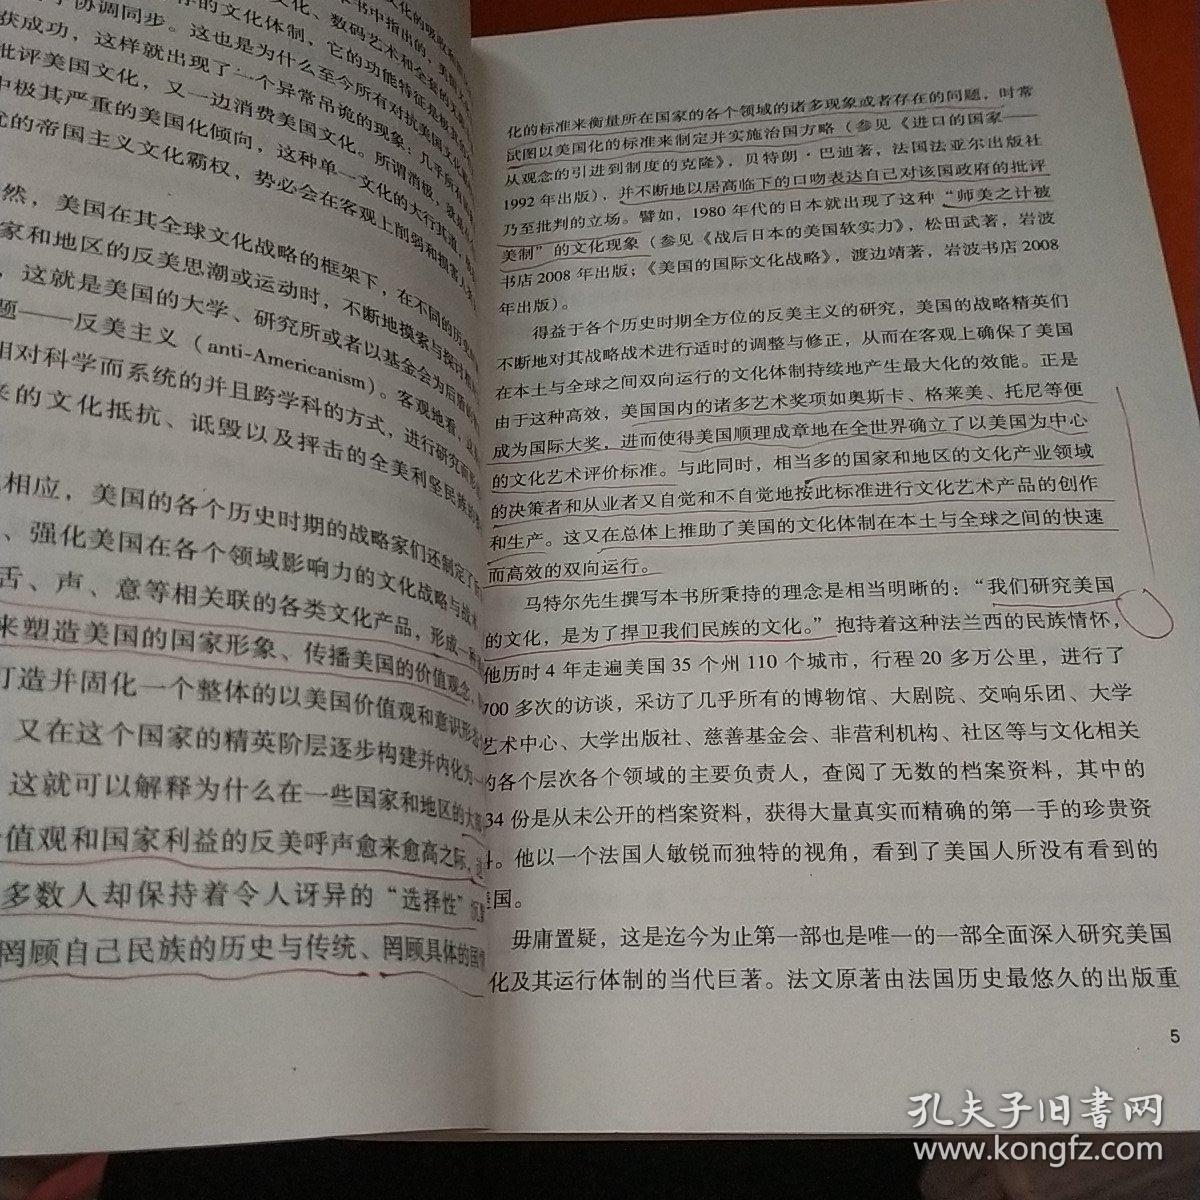 化的吸收和
文化、数码艺术和全
书中指出的，美国
存的文化体制，它的功能特征是极其
协调同步。这也是为什么至今所有对抗美国文化
获成功，这样就出现了一个异常吊诡的现象：几乎所有
批评美国文化，又一边消费美国文化。所谓消极，
中极其严重的美国化倾向，这种单一文化的大行其道，
的帝国主义文化霸权，势必会在客观上削弱和损害
然，美国在其全球文化战略的框架下，在不同的历史
家和地区的反美思潮或运动时，不断地摸索与探讨
，这就是美国的大学、研究所或者以基金会为后盾
题——反美主义（anti-Americanism）。客观地看，
相对科学而系统的并且跨学科的方式，进行研究
来的文化抵抗、诋毁以及抨击的全美利坚民族的
相应，美国的各个历史时期的战略家们还制定了
、强化美国在各个领域影响力的文化战略与战术
舌、声、意等相关联的各类文化产品，形成一种
来塑造美国的国家形象、传播美国的价值观念，
打造并固化一个整体的以美国价值观和意识形态
又在这个国家的精英阶层逐步构建并内化为一
这就可以解释为什么在一些国家和地区的大
值观和国家利益的反美呼声愈来愈高之际，
多数人却保持着令人讶异的“选择性”
罔顾自己民族的历史与传统、罔顾具体的国
化的标准来衡量所在国家的各个领域的诸多现象或者存在的问题，时常
试图以美国化的标准来制定并实施治国方略（参见《进口的国家——
从观念的引进到制度的克隆》，贝特朗·巴迪著，法国法亚尔出版社
1992 年出版），并不断地以居高临下的口吻表达自己对该国政府的批评
乃至批判的立场。譬如，1980 年代的日本就出现了这种“师美之计被
美制”的文化现象（参见《战后日本的美国软实力》，松田武著，岩波
书店 2008 年出版；《美国的国际文化战略》，渡边靖著，岩波书店 2008
年出版）。
得益于各个历史时期全方位的反美主义的研究，美国的战略精英们
不断地对其战略战术进行适时的调整与修正，从而在客观上确保了美国
在本土与全球之间双向运行的文化体制持续地产生最大化的效能。正是
由于这种高效，美国国内的诸多艺术奖项如奥斯卡、格莱美、托尼等便
成为国际大奖，进而使得美国顺理成章地在全世界确立了以美国为中心
的文化艺术评价标准。与此同时，相当多的国家和地区的文化产业领域
的决策者和从业者又自觉和不自觉地按此标准进行文化艺术产品的创作
和生产。这又在总体上推助了美国的文化体制在本土与全球之间的快速
而高效的双向运行。
马特尔先生撰写本书所秉持的理念是相当明晰的：“我们研究美国
的文化，是为了捍卫我们民族的文化。”抱持着这种法兰西的民族情怀，
他历时 4 年走遍美国 35 个州 110 个城市，行程 20 多万公里，进行了
700 多次的访谈，采访了几乎所有的博物馆、大剧院、交响乐团、大学
艺术中心、大学出版社、慈善基金会、非营利机构、社区等与文化相关
的各个层次各个领域的主要负责人，查阅了无数的档案资料，其中的
34 份是从未公开的档案资料，获得大量真实而精确的第一手的珍贵资
料。他以一个法国人敏锐而独特的视角，看到了美国人所没有看到的
美国。
毋庸置疑，这是迄今为止第一部也是唯一的一部全面深入研究美国
化及其运行体制的当代巨著。法文原著由法国历史最悠久的出版重
5
孔夫子旧书网
www.kongfz.com